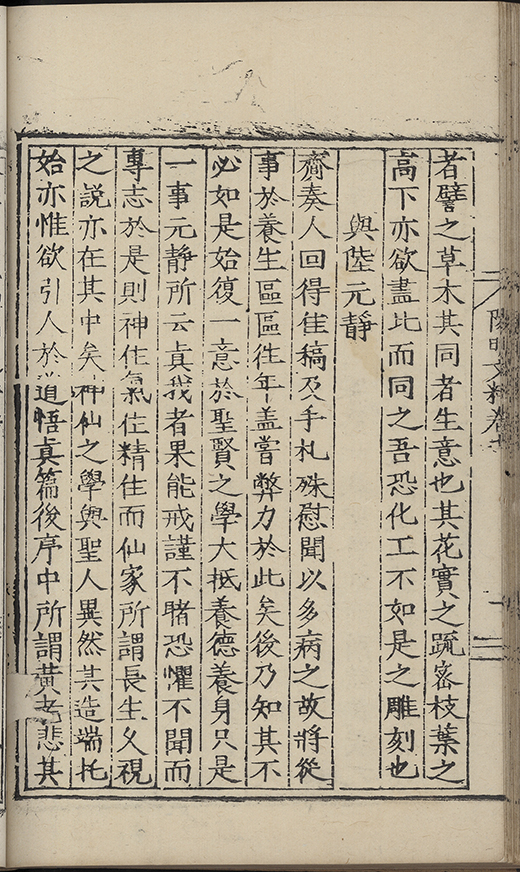 者譬之草木其同者生意也其花實之疏密枝葉之
高下亦欲盡比而同之吾恐化工不如是之雕刻也
與陸元靜
齎奏人回得佳稿及手札殊慰聞以多病之故將從
事於養生區區徃年盖嘗弊力於此矣後乃知其不
必如是始復一意於聖賢之學大抵養德養身只是
一事元靜所云真我者果能戒謹不睹恐懼不聞而
專志於是則神住氣住精住而仙家所謂長生久視
之說亦在其中矣神仙之學與聖人異然其造端托
始亦惟欲引人於道悟真篇後序中所謂黃老悲其
陽明文粹卷